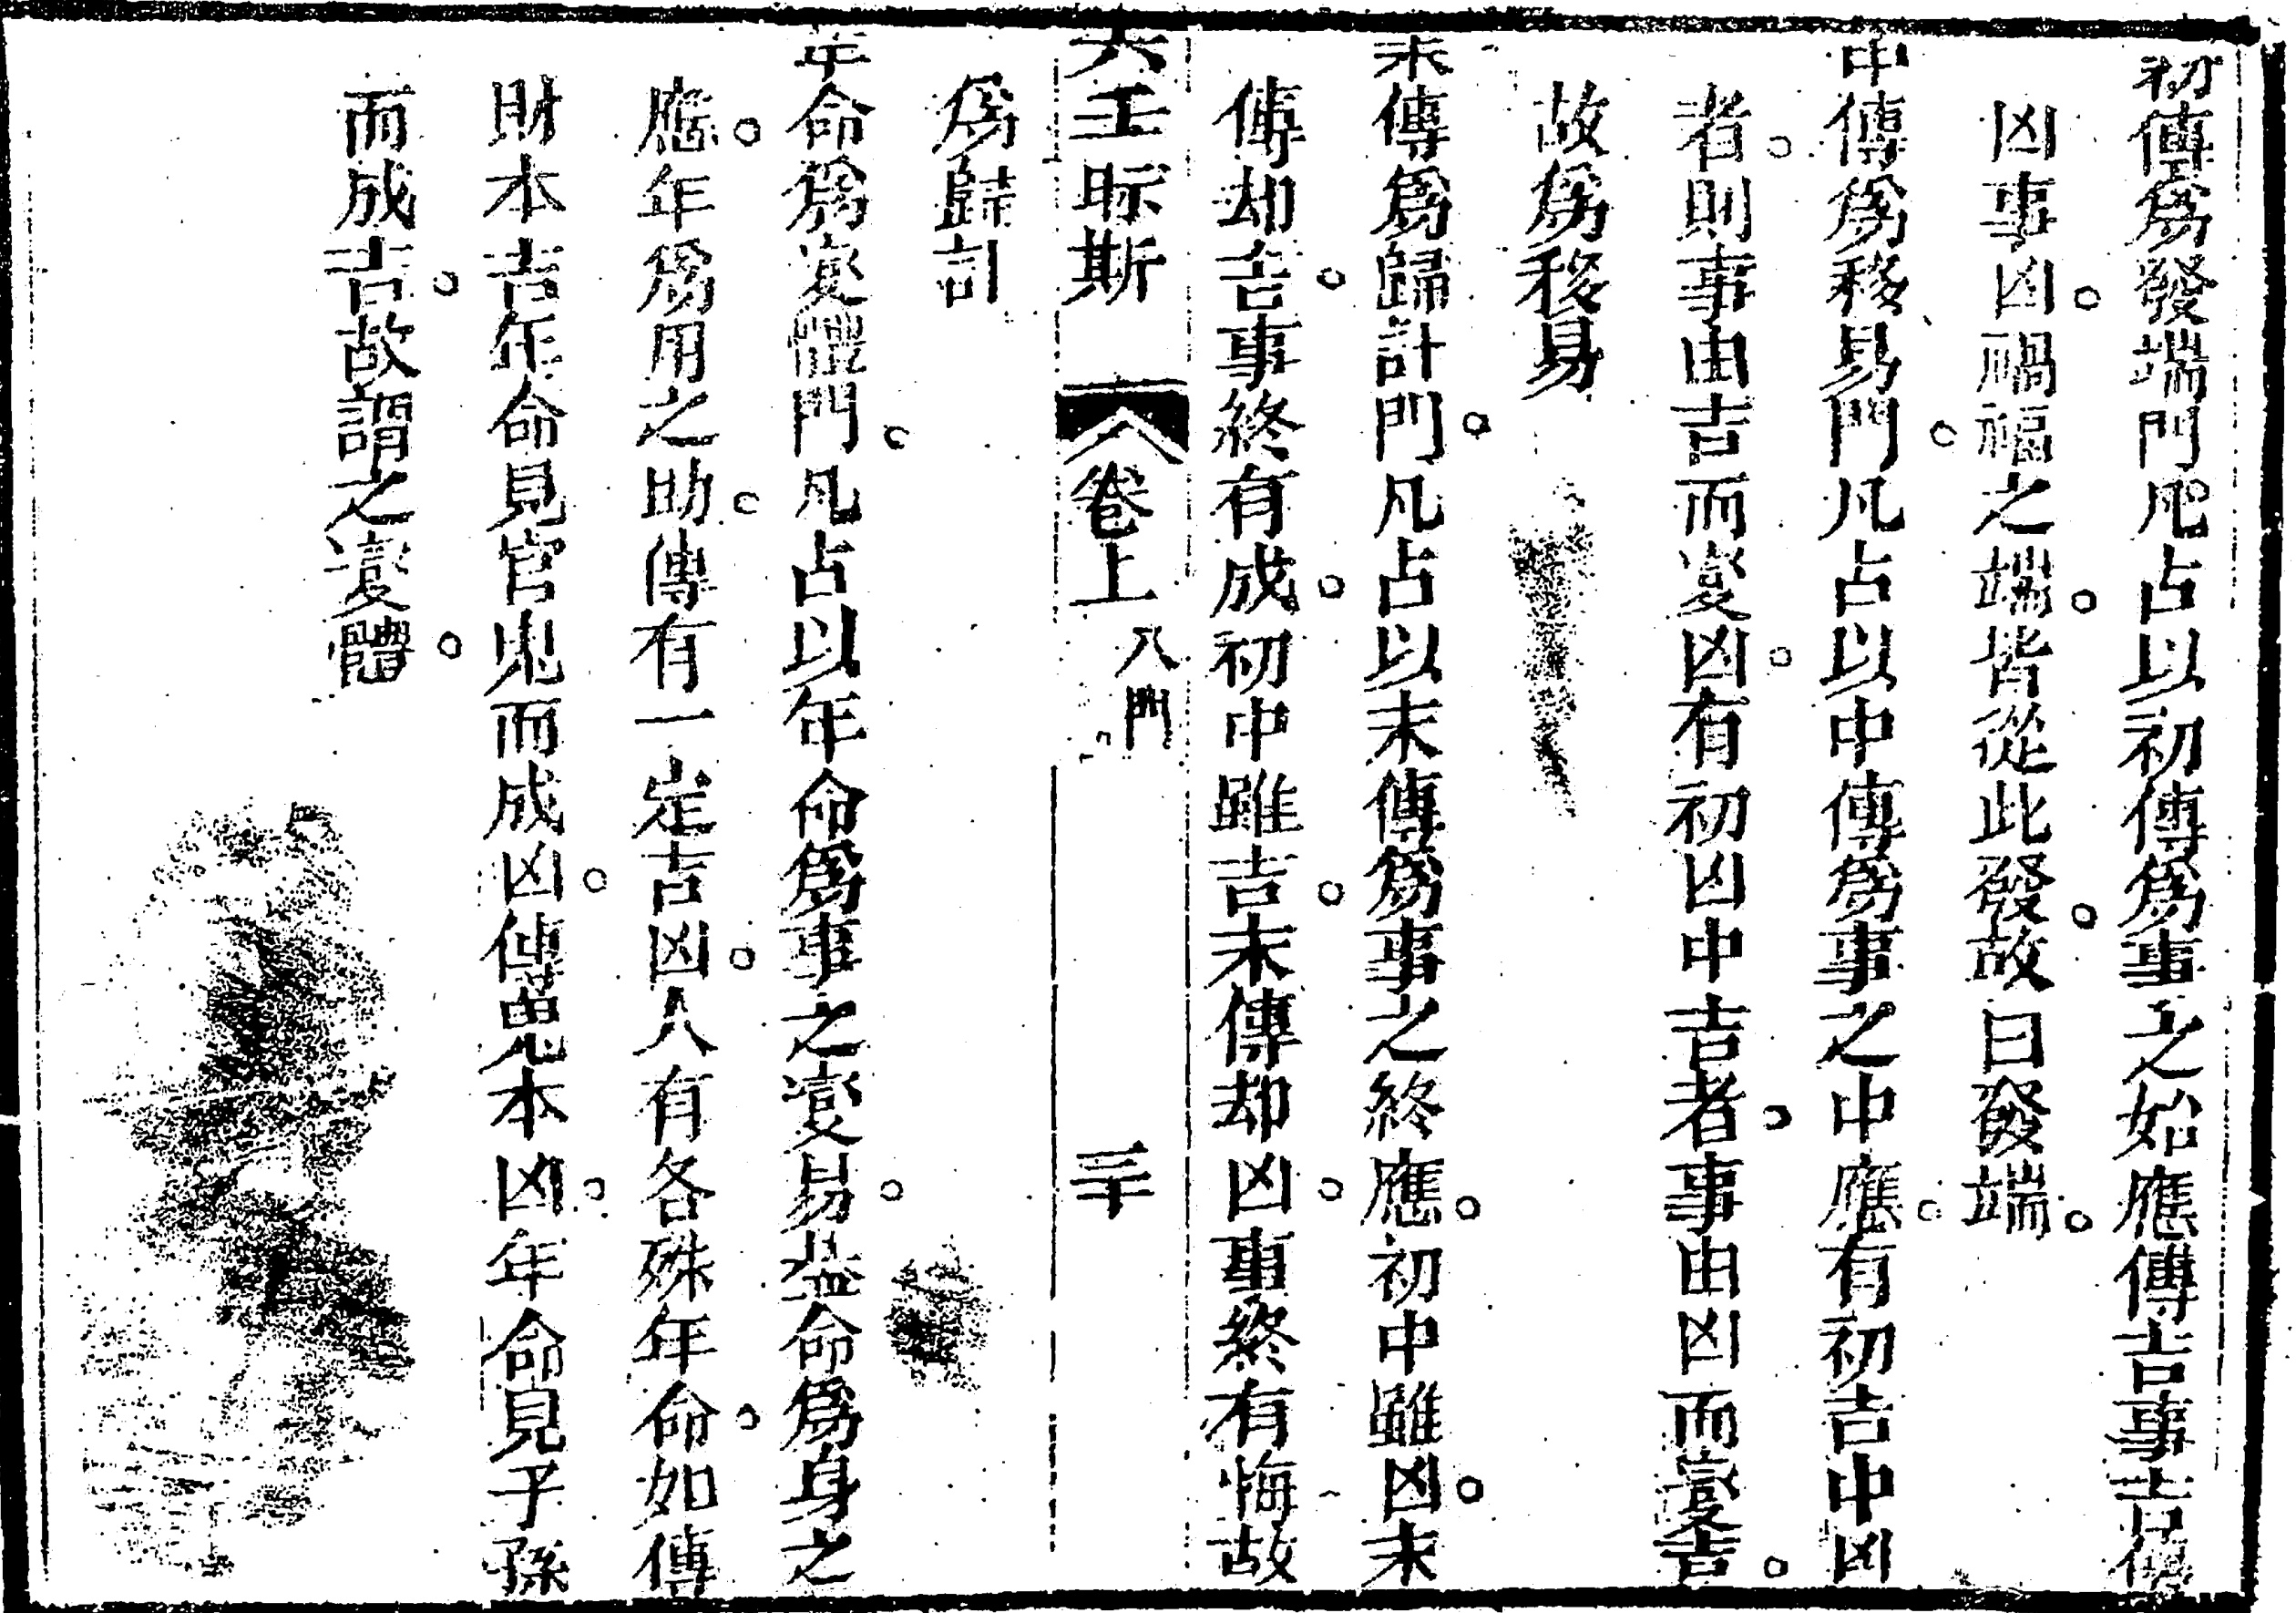 初傳爲發端門凡占以初傳爲事之始應傳吉事吉傳
凶事凶禍福之端皆從此發故曰發端
中傳爲移易門凡占以中傳爲事之中應有初吉中凶
者則事由吉而變凶有初凶中吉者事由凶而變吉
故爲移易
末傳爲歸計門凡占以末傳爲事之終應初中雖凶末
傳却吉事終有成初中雖吉末傳却凶事終有悔故
爲歸計
六壬眎斯 卷上 八門 三十
年命爲變體門凡占以年命爲事之變易盖命爲身之
應年爲用之助傳有一定吉凶人有各殊年命如傳
財本吉年命見官鬼而成凶傳鬼本凶年命見子孫
而成吉故謂之變體